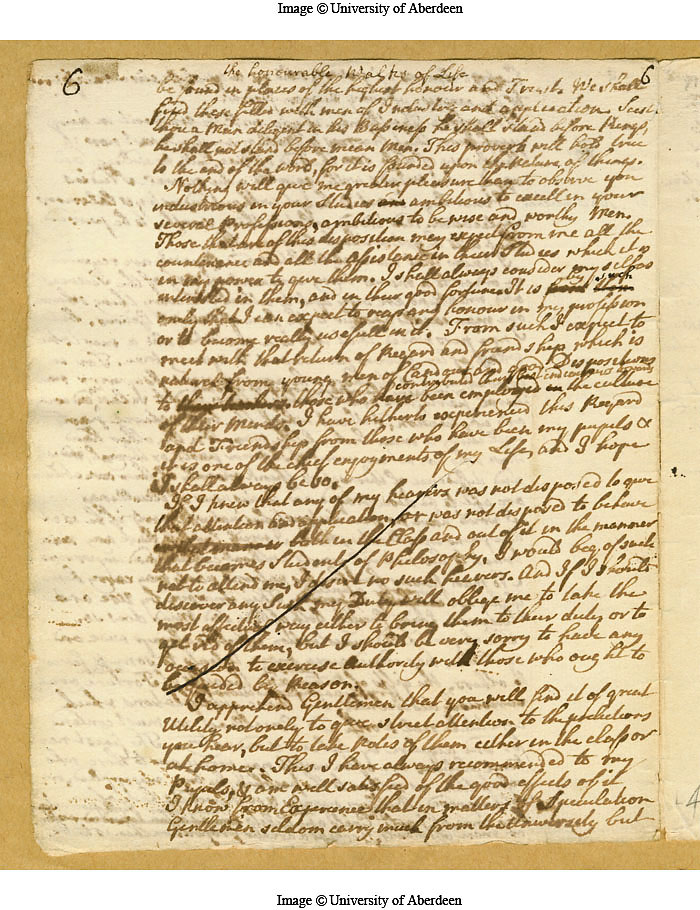 Image © University of Aberdeen
6
6
the honourable Walks of Life
be found in places of the highest honour and Trust. We shall
find these filled with men of Industry and application. Seest
thou a Man diligent in his Business he shall stand before Kings,
he shall not stand before mean Men. This proverb will hold true
to the end of the world, for it is founded upon the Nature of things.
Nothing will give me greater pleasure than to observe you
industrious in your Studies and ambitious to excell in your
several Professions, ambitious to be wise and worthy Men.
Those that are of this disposition may expect from me all the
countenance and all the Assistance in their Studies which it is
in my power to give them. I shall always consider my self as
interested in them, and in their good fortune. It is from them
by such
only that I can expect to reap any honour in my profession
or to become really usefull in it. From such I expect to
meet with that return of Regard and friendship which is
natural from young men of Candour and good Dispositions
contributed their best endeavours towards
to those who have been employed in the culture
of their Minds. I have hitherto experienced this Regard
and Friendship from those who have been my pupils &
it is one of the chief enjoyments of my Life, and I hope
I shall always be so.
If I knew that any of my hearers was not disposed to give
that attention and application, or was not disposed to behave
both in the Class and out of it in the manner
that becomes Students of Philosophy. I would beg of such
not to attend me, I desire no such hearers. And If I should
discover any such my Duty will oblige me to take the
most effectual way either to bring them to their duty or to
get rid of them, but I should be very sorry to have any
occasion to exercise Authority with those who ought to
be guided by Reason.
I apprehend Gentlemen that you will find it of great
Utility not onely to give strict attention to the prelections
you hear, but to take Notes of them either in the class or
at home. This I have always recommended to my
Pupils, & am well satisfied of the good effects of it
I know from Experience that in matters of Speculation
Gentlemen seldom carry much from the University but
Image © University of Aberdeen